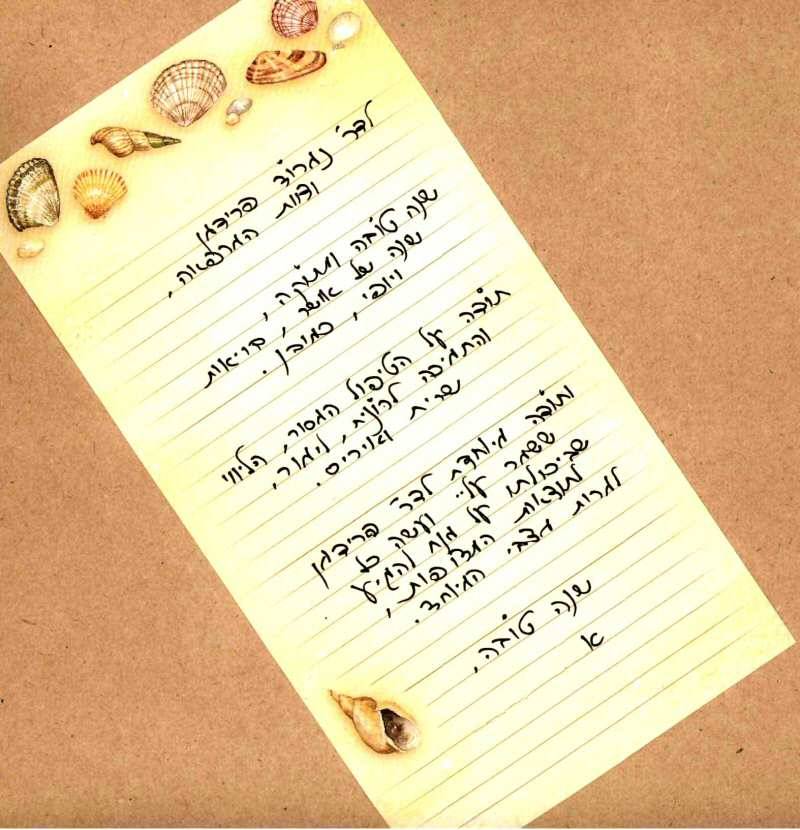 לדר' נמרוד פרידמן
וצוות המרפאה,
שנה טובה ומתוקה,
שנה של אושר, בריאות
ויופי, כמובן.
תודה על הטיפול המסור, הליווי
והתמיכה לרונית, לימור,
שרית ואיריס.
ותודה מיוחדת לדר' פרידמן
ששמר עלי ועשה כל
שביכולתו על מנת להגיע
לתוצאות המצופות,
למרות מצבי המיוחד.
שנה טובה,
א